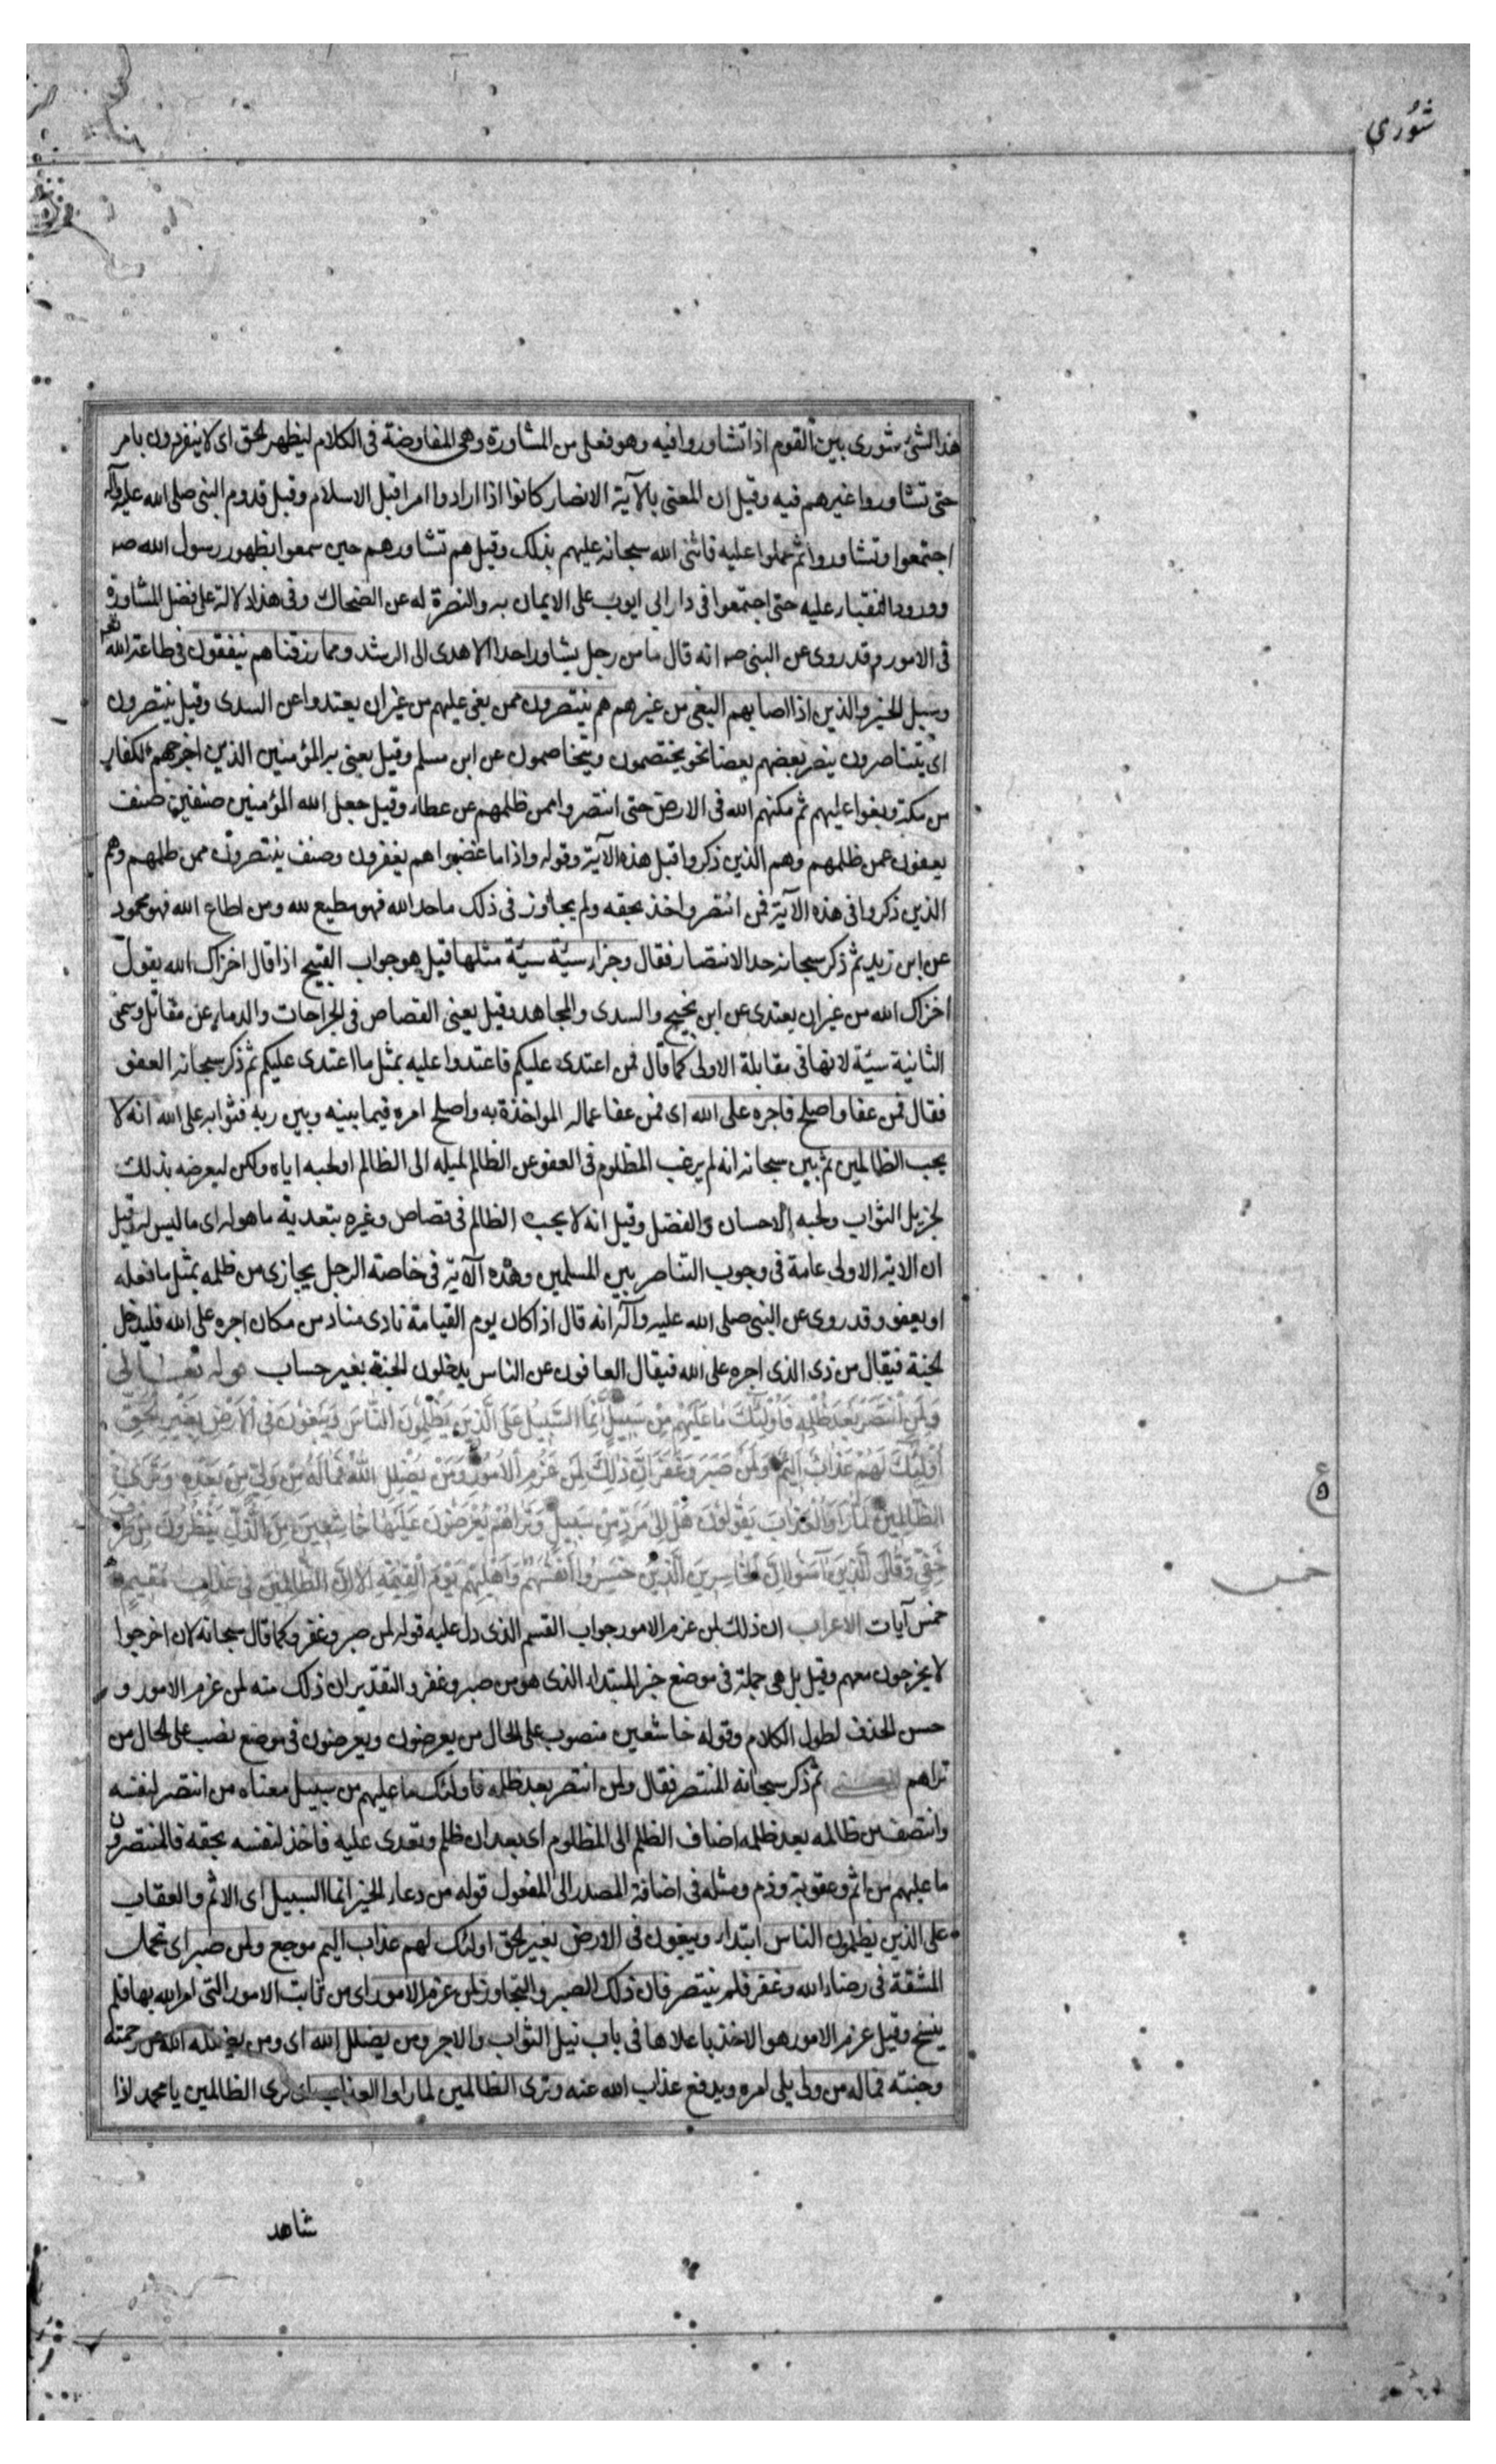 شُورى
هذا الشئ شورى بين القوم اذا تشاوروا فيه وهو فعلى من المشاورة وهى المفاوضة فى الكلام ليظهر الحق اى لا يتفردون بامر
حتى تشاوروا غيرهم فيه وقيل ان المعنى بالآية الانصار كانوا اذا ارادوا امرا قبل الاسلام وقبل قدوم النبى صلى الله عليه وآله
اجتمعوا وتشاوروا ثم عملوا عليه فاثنى الله سبحانه عليهم بذلك وقيل هم تشاورهم حين سمعوا بظهور رسول الله صـ
وورود النقباء عليه حتى اجتمعوا فى دار ابى ايوب على الايمان به والنصرة له عن الضحاك وفى هذا دلالة على فضل المشاورة
فى الامور وقد روى عن النبى صـ انه قال ما من رجل يشاور احدا الا هدى الى الرشد ومما رزقناهم ينفقون فى طاعة الله
وسبيل الخير والذين اذا اصابهم البغى من غيرهم هم ينتصرون ممن بغى عليهم من غير ان يعتدوا عن السدى وقيل ينتصرون
اى يتناصرون ينصر بعضهم بعضا نحو يختصمون ويتخاصمون عن ابى مسلم وقيل يعنى به المؤمنين الذين اخرجهم الكفار
من مكة وبغوا عليهم ثم مكنهم الله فى الارض حتى انتصروا ممن ظلمهم عن عطاء وقيل جعل الله المؤمنين صنفين صنف
يعفون عمن ظلمهم وهم الذين ذكروا قبل هذه الآية وقوله واذا ما غضبوا هم يغفرون وصنف ينتصرون ممن ظلمهم وهم
الذين ذكروا فى هذه الآية فمن انتصر واخذ بحقه ولم يجاوز فى ذلك ما حد الله فهو مطيع لله ومن اطاع الله فهو محمود
عن ابن زيد ثم ذكر سبحانه حد الانتصار فقال وجزاء سيئة سيئة مثلها قيل هو جواب القبيح اذا قال اخزاك الله يقول
اخزاك الله من غير ان يعتدى عن ابن نجيح والسدى والمجاهد وقيل يعنى القصاص فى الجراحات والدماء عن مقاتل وسمى
الثانية سيئة لانها فى مقابلة الاولى كما قال فمن اعتدى عليكم فاعتدوا عليه بمثل ما اعتدى عليكم ثم ذكر سبحانه العفو
فقال فمن عفا واصلح فاجره على الله اى فمن عفا عماله المواخذة به واصلح امره فيما بينه وبين ربه فثوابه على الله انه لا
يحب الظالمين ثم بين سبحانه انه لم يرغب المظلوم فى العفو عن الظالم لميله الى الظالم او لحبه اياه ولكن ليعرضه بذلك
لجزيل الثواب ولحبه الاحسان والفضل وقيل انه لا يحب الظالم فى قصاص وغيره بتعديه ما هو له اى ما ليس له وقيل
ان الاية الاولى عامة فى وجوب التناصر بين المسلمين وهذه الآية فى خاصة الرجل يجازى من ظلمه بمثل ما فعله
او يعفو وقد روى عن النبى صلى الله عليه وآله انه قال اذا كان يوم القيامة نادى مناد من كان اجره على الله فليدخل
الجنة فيقال من ذى الذى اجره على الله فيقال العافون عن الناس يدخلون الجنة بغير حساب قوله تعالى
وَلَمَنِ انْتَصَرَ بَعْدَ ظُلْمِهِ فَأُولَئِكَ مَا عَلَيْهِمْ مِنْ سَبِيلٍ إِنَّمَا السَّبِيلُ عَلَى الَّذِينَ يَظْلِمُونَ النَّاسَ وَيَبْغُونَ فِى الْأَرْضِ بِغَيْرِ الْحَقِّ
أُولَئِكَ لَهُمْ عَذَابٌ أَلِيمٌ وَلَمَنْ صَبَرَ وَغَفَرَ إِنَّ ذَلِكَ لَمِنْ عَزْمِ الْأُمُورِ وَمَنْ يُضْلِلِ اللَّهُ فَمَا لَهُ مِنْ وَلِيٍّ مِنْ بَعْدِهِ وَتَرَى
الظَّالِمِينَ لَمَّا رَأَوُا الْعَذَابَ يَقُولُونَ هَلْ إِلَى مَرَدٍّ مِنْ سَبِيلٍ وَتَرَاهُمْ يُعْرَضُونَ عَلَيْهَا خَاشِعِينَ مِنَ الذُّلِّ يَنْظُرُونَ مِنْ طَرْفٍ
خَفِيٍّ وَقَالَ الَّذِينَ آمَنُوا إِنَّ الْخَاسِرِينَ الَّذِينَ خَسِرُوا أَنْفُسَهُمْ وَأَهْلِيهِمْ يَوْمَ الْقِيمَةِ أَلَا إِنَّ الظَّالِمِينَ فِى عَذَابٍ مُقِيمٍ
خمس
خمس آيات الاعراب ان ذلك لمن عزم الامور جواب القسم الذى دل عليه قوله لمن صبر وغفر وكما قال سبحانه لان اخرجوا
لا يخرجون معهم وقيل بل هى جملة فى موضع خبر المبتداء الذى هو من صبر وغفر والتقدير ان ذلك منه لمن عزم الامور و
حسن الحذف لطول الكلام وقوله خاشعين منصوب على الحال من يعرضون ويعرضون فى موضع نصب على الحال من
تراهم المعنى ثم ذكر سبحانه المنتصر فقال ولمن انتصر بعد ظلمه فاولئك ما عليهم من سبيل معناه من انتصر لنفسه
وانتصف من ظالمه بعد ظلمه اضاف الظلم الى المظلوم اى بعد ان ظلم وتعدى عليه فاخذ لنفسه بحقه فالمنتصرون
ما عليهم من اثم وعقوبة وذم ومثله فى اضافة المصدر الى المفعول قوله من دعاء الخير انما السبيل اى الاثم والعقاب
على الذين يظلمون الناس ابتداء ويبغون فى الارض بغير الحق اولئك لهم عذاب اليم موجع ولمن صبر اى تحمل
المشقة فى رضاء الله وغفر فلم ينتصر فان ذلك الصبر والتجاوز لمن عزم الامور اى من ثابت الامور التى امر الله بها فلم
ينسخ وقيل عزم الامور هو الاخذ باعلاها فى باب نيل الثواب والاجر ومن يضلل الله اى ومن يضلله الله عن رحمته
وجنته فماله من ولى يلى امره ويدفع عذاب الله عنه وترى الظالمين لما راوا العذاب اى ترى الظالمين يا محمد اذا
شاهد